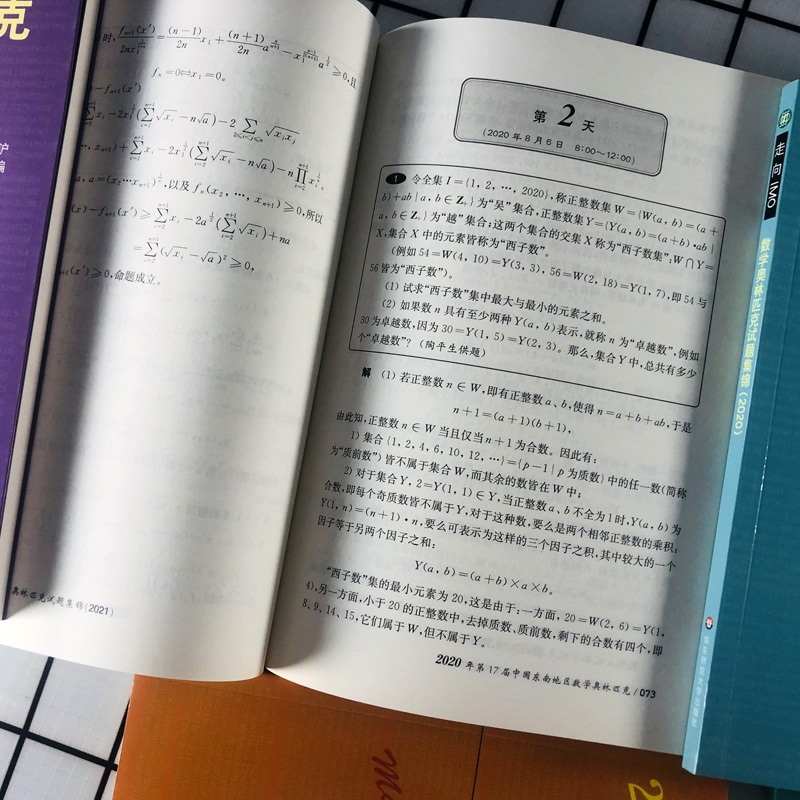 克
f_n=0⇔x_1=0。
a, a=(x_2⋯x_{n+1})^{1/n},以及 f_n(x_2, ⋯, x_{n+1})≥0,所以
=∑_{i=2}^{n+1}(√x_i-√a)²≥0,
(x')≥0,命题成立。
奥林匹克试题集锦(2021)
第2天
(2020年8月6日 8:00~12:00)
1 令全集 I={1, 2, ⋯, 2020},称正整数集 W={W(a, b)=(a+
b)+ab | a, b∈Z₊} 为“吴”集合,正整数集 Y={Y(a, b)=(a+b)·ab |
a, b∈Z₊} 为“越”集合;这两个集合的交集 X 称为“西子数集”:W∩Y=
X,集合 X 中的元素皆称为“西子数”。
(例如 54=W(4, 10)=Y(3, 3), 56=W(2, 18)=Y(1, 7),即 54 与
56 皆为“西子数”)。
(1) 试求“西子数”集中最大与最小的元素之和。
(2) 如果数 n 具有至少两种 Y(a, b) 表示,就称 n 为“卓越数”,例如
30 为卓越数,因为 30=Y(1, 5)=Y(2, 3)。那么,集合 Y 中,总共有多少
个“卓越数”? (陶平生供题)
解 (1) 若正整数 n∈W,即有正整数 a、b,使得 n=a+b+ab,于是
n+1=(a+1)(b+1),
由此知,正整数 n∈W 当且仅当 n+1 为合数。因此有:
1) 集合 {1, 2, 4, 6, 10, 12, ⋯}={p-1 | p 为质数} 中的任一数(简称
为“质前数”)皆不属于集合 W,而其余的数皆在 W 中;
2) 对于集合 Y, 2=Y(1, 1)∈Y,当正整数 a、b 不全为 1 时, Y(a, b) 为
合数,即每个奇质数皆不属于 Y,对于这种数,要么是两个相邻正整数的乘积;
Y(1, n)=(n+1)·n,要么可表示为这样的三个因子之积,其中较大的一个
因子等于另两个因子之和:
Y(a, b)=(a+b)×a×b。
“西子数”集的最小元素为 20,这是由于:一方面, 20=W(2, 6)=Y(1,
4),另一方面,小于 20 的正整数中,去掉质数、质前数,剩下的合数有四个,即
8、9、14、15,它们属于 W,但不属于 Y。
2020 年第 17 届中国东南地区数学奥林匹克 / 073
走向IMO
数学奥林匹克试题集锦(2020)